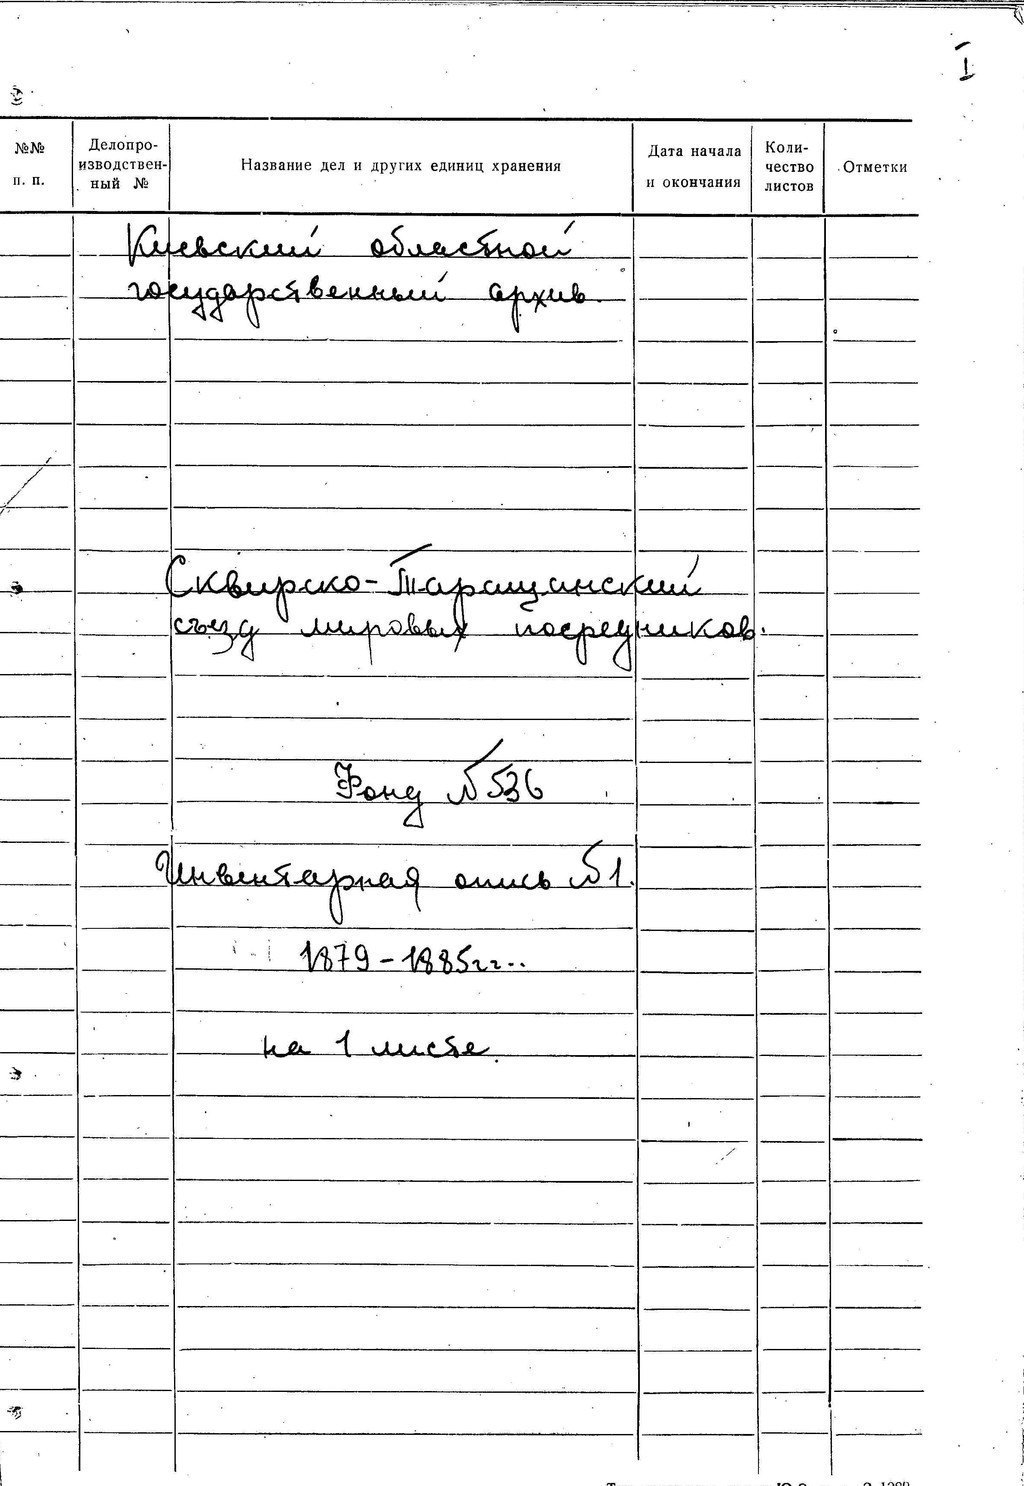 I
№№ п. п.
Делопро-
изводствен-
ный №
Название дел и других единиц хранения
Дата начала
и окончания
Коли-
чество
листов
Отметки
Киевский областной
государственный архив.
Сквирско-Таращанский
съезд мировых посредников.
Фонд № 536
Инвентарная опись № 1.
1879-1885гг..
на 1 листе.